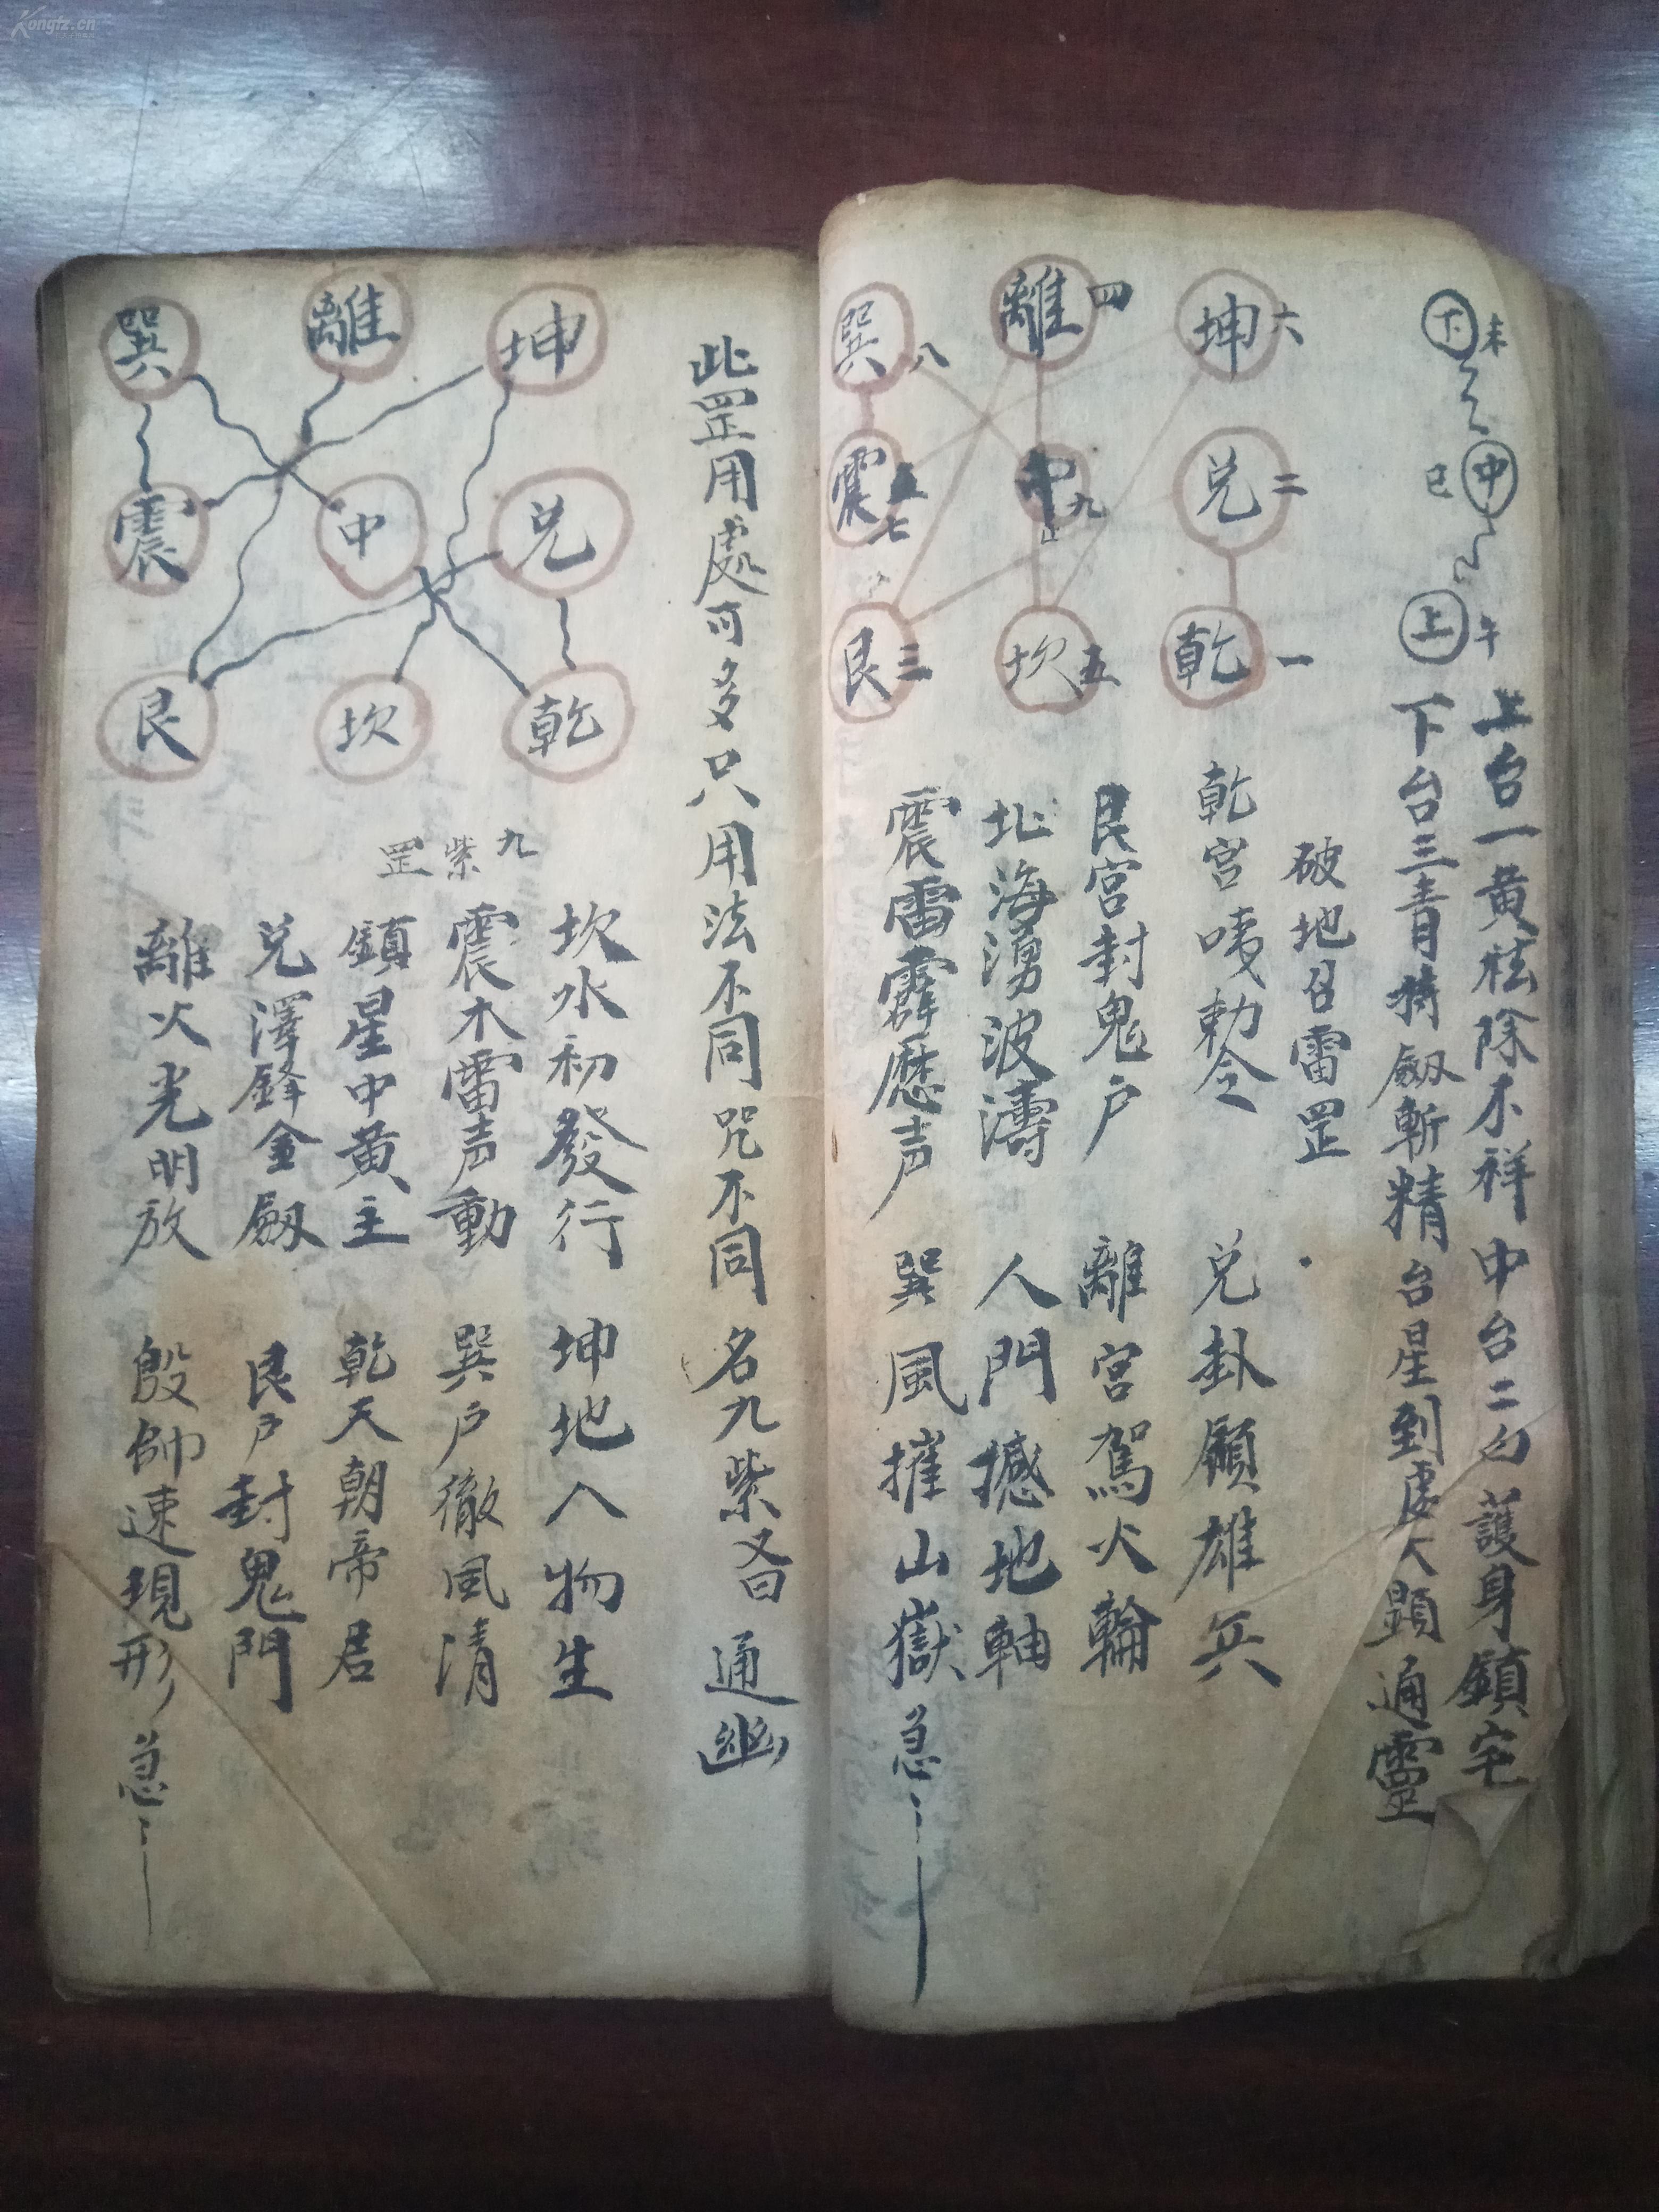 Kongfz.cn
下未
中巳
上午
上台一黄祛除不祥中台二白護身鎮宅
下台三青揹劔斬精台星到處大顕通靈
坤六
離四
巽八
兑二
中九止
震五七
乾一
坎五
艮三
破地召雷罡
乾宫咦勅令 兑卦領雄兵
艮宫封鬼户 離宫駕火輪
北海湧波濤 人門撼地軸
震雷霹歷声 巽風摧山嶽急
此罡用處可多只用法不同咒不同名九紫又曰通幽
坤
離
巽
兑
中
震
乾
坎
艮
九紫罡
坎水初發行 坤地入物生
震木雷声動 巽户徹風清
鎮星中黄主 乾天朝帝居
兑澤鋒金劔 艮户封鬼門
離火光明放 殷帥速現形急